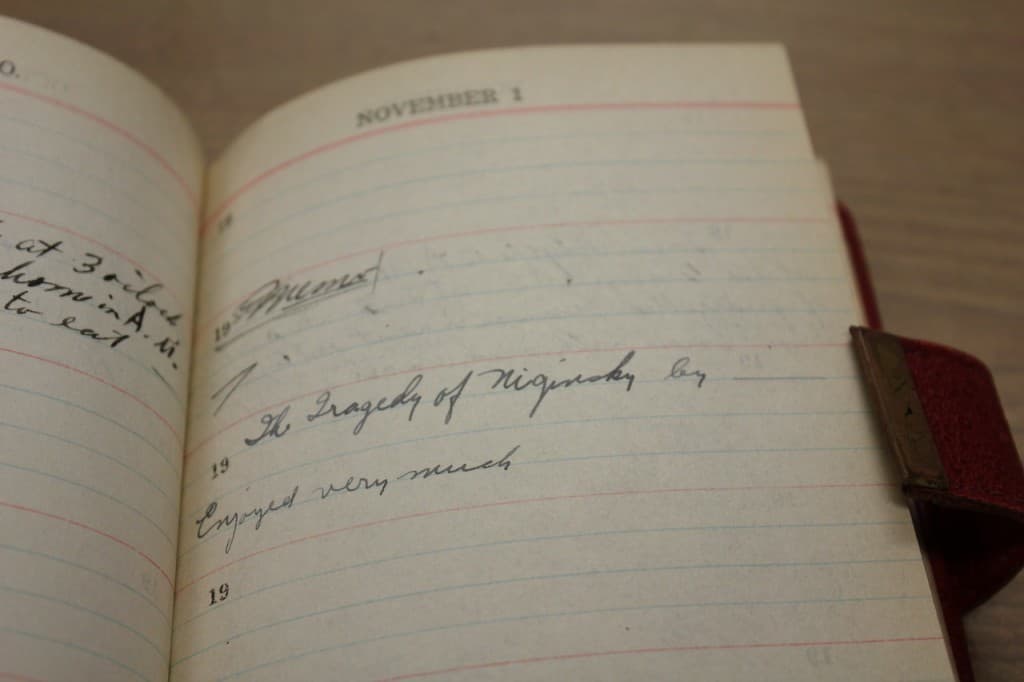 at 3 oclock
home in A.M.
to eat
NOVEMBER 1
19
19 Memo
The Tragedy of Niginsky by ____
19
Enjoyed very much
19